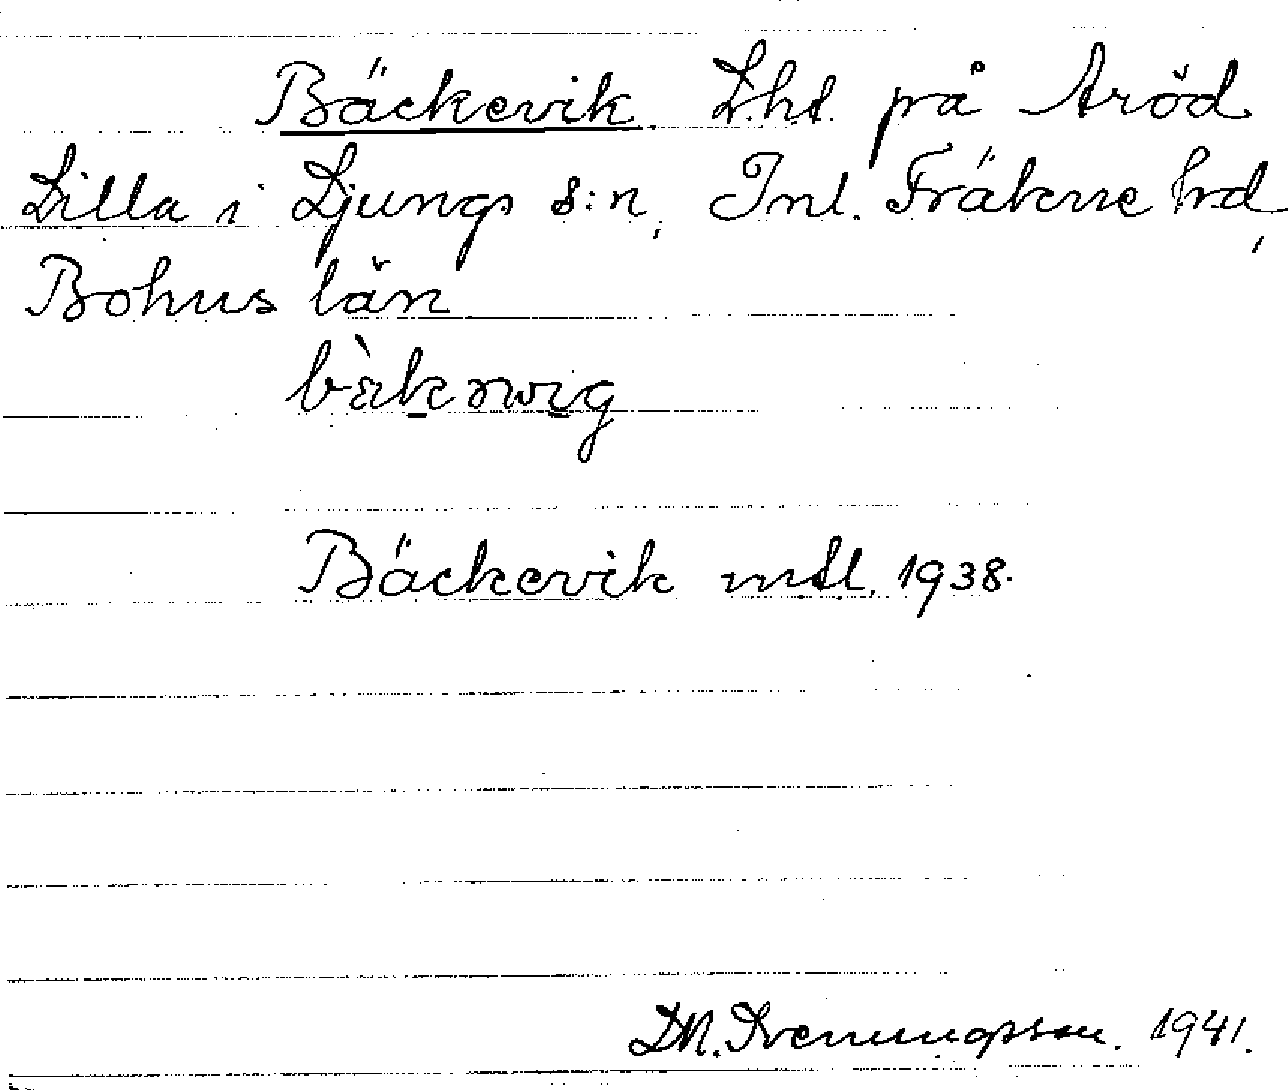 Bäckevik. Lht. på Aröd
Lilla i Ljungs s:n, Inl. Fräkne hd,
Bohus län
bæ̀kəvig
Bäckevik mtl. 1938.
D.N. Svenningsson. 1941.